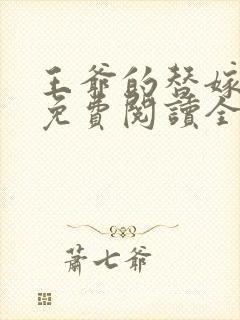 王爺的替嫁
免費閱讀全
蕭七爺